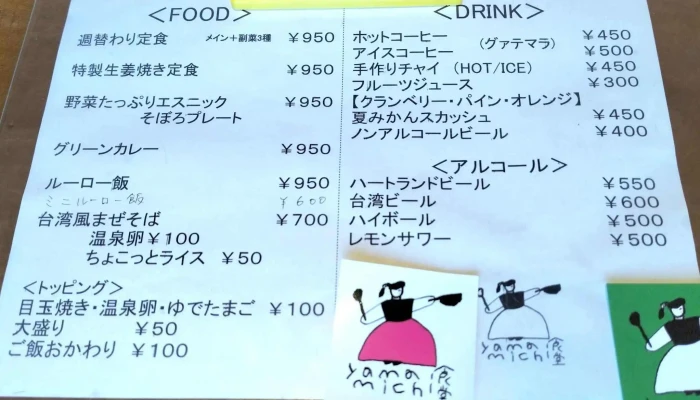 ＜FOOD＞
週替わり定食 メイン＋副菜3種 ￥950
特製生姜焼き定食 ￥950
野菜たっぷりエスニック ￥950
そぼろプレート
グリーンカレー ￥950
ルーロー飯 ￥950
ミニルーロー飯 ￥600
台湾風まぜそば ￥700
温泉卵￥100
ちょこっとライス ￥50
＜トッピング＞
目玉焼き・温泉卵・ゆでたまご ￥100
大盛り ￥50
ご飯おかわり ￥100
＜DRINK＞
ホットコーヒー ￥450
(グァテマラ)
アイスコーヒー ￥500
手作りチャイ (HOT/ICE) ￥450
フルーツジュース ￥300
【クランベリー・パイン・オレンジ】
夏みかんスカッシュ ￥450
ノンアルコールビール ￥400
＜アルコール＞
ハートランドビール ￥550
台湾ビール ￥600
ハイボール ￥500
レモンサワー ￥500
yama
michi食堂
yama
michi食堂